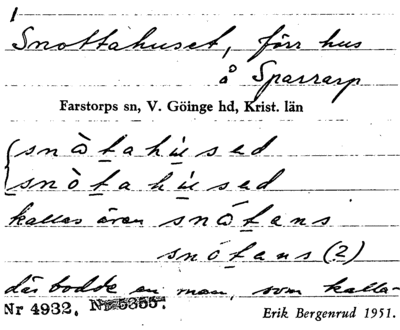 1
Snottahuset, förr hus
å Sparrarp
Farstorps sn, V. Göinge hd, Krist. län
snå̀tahu̇sed
snòtahu̇sed
kallas även snåtans
snótans (?)
där bodde en man, som kalla-
Nr 4932. Nr 5355.
Erik Bergenrud 1951.